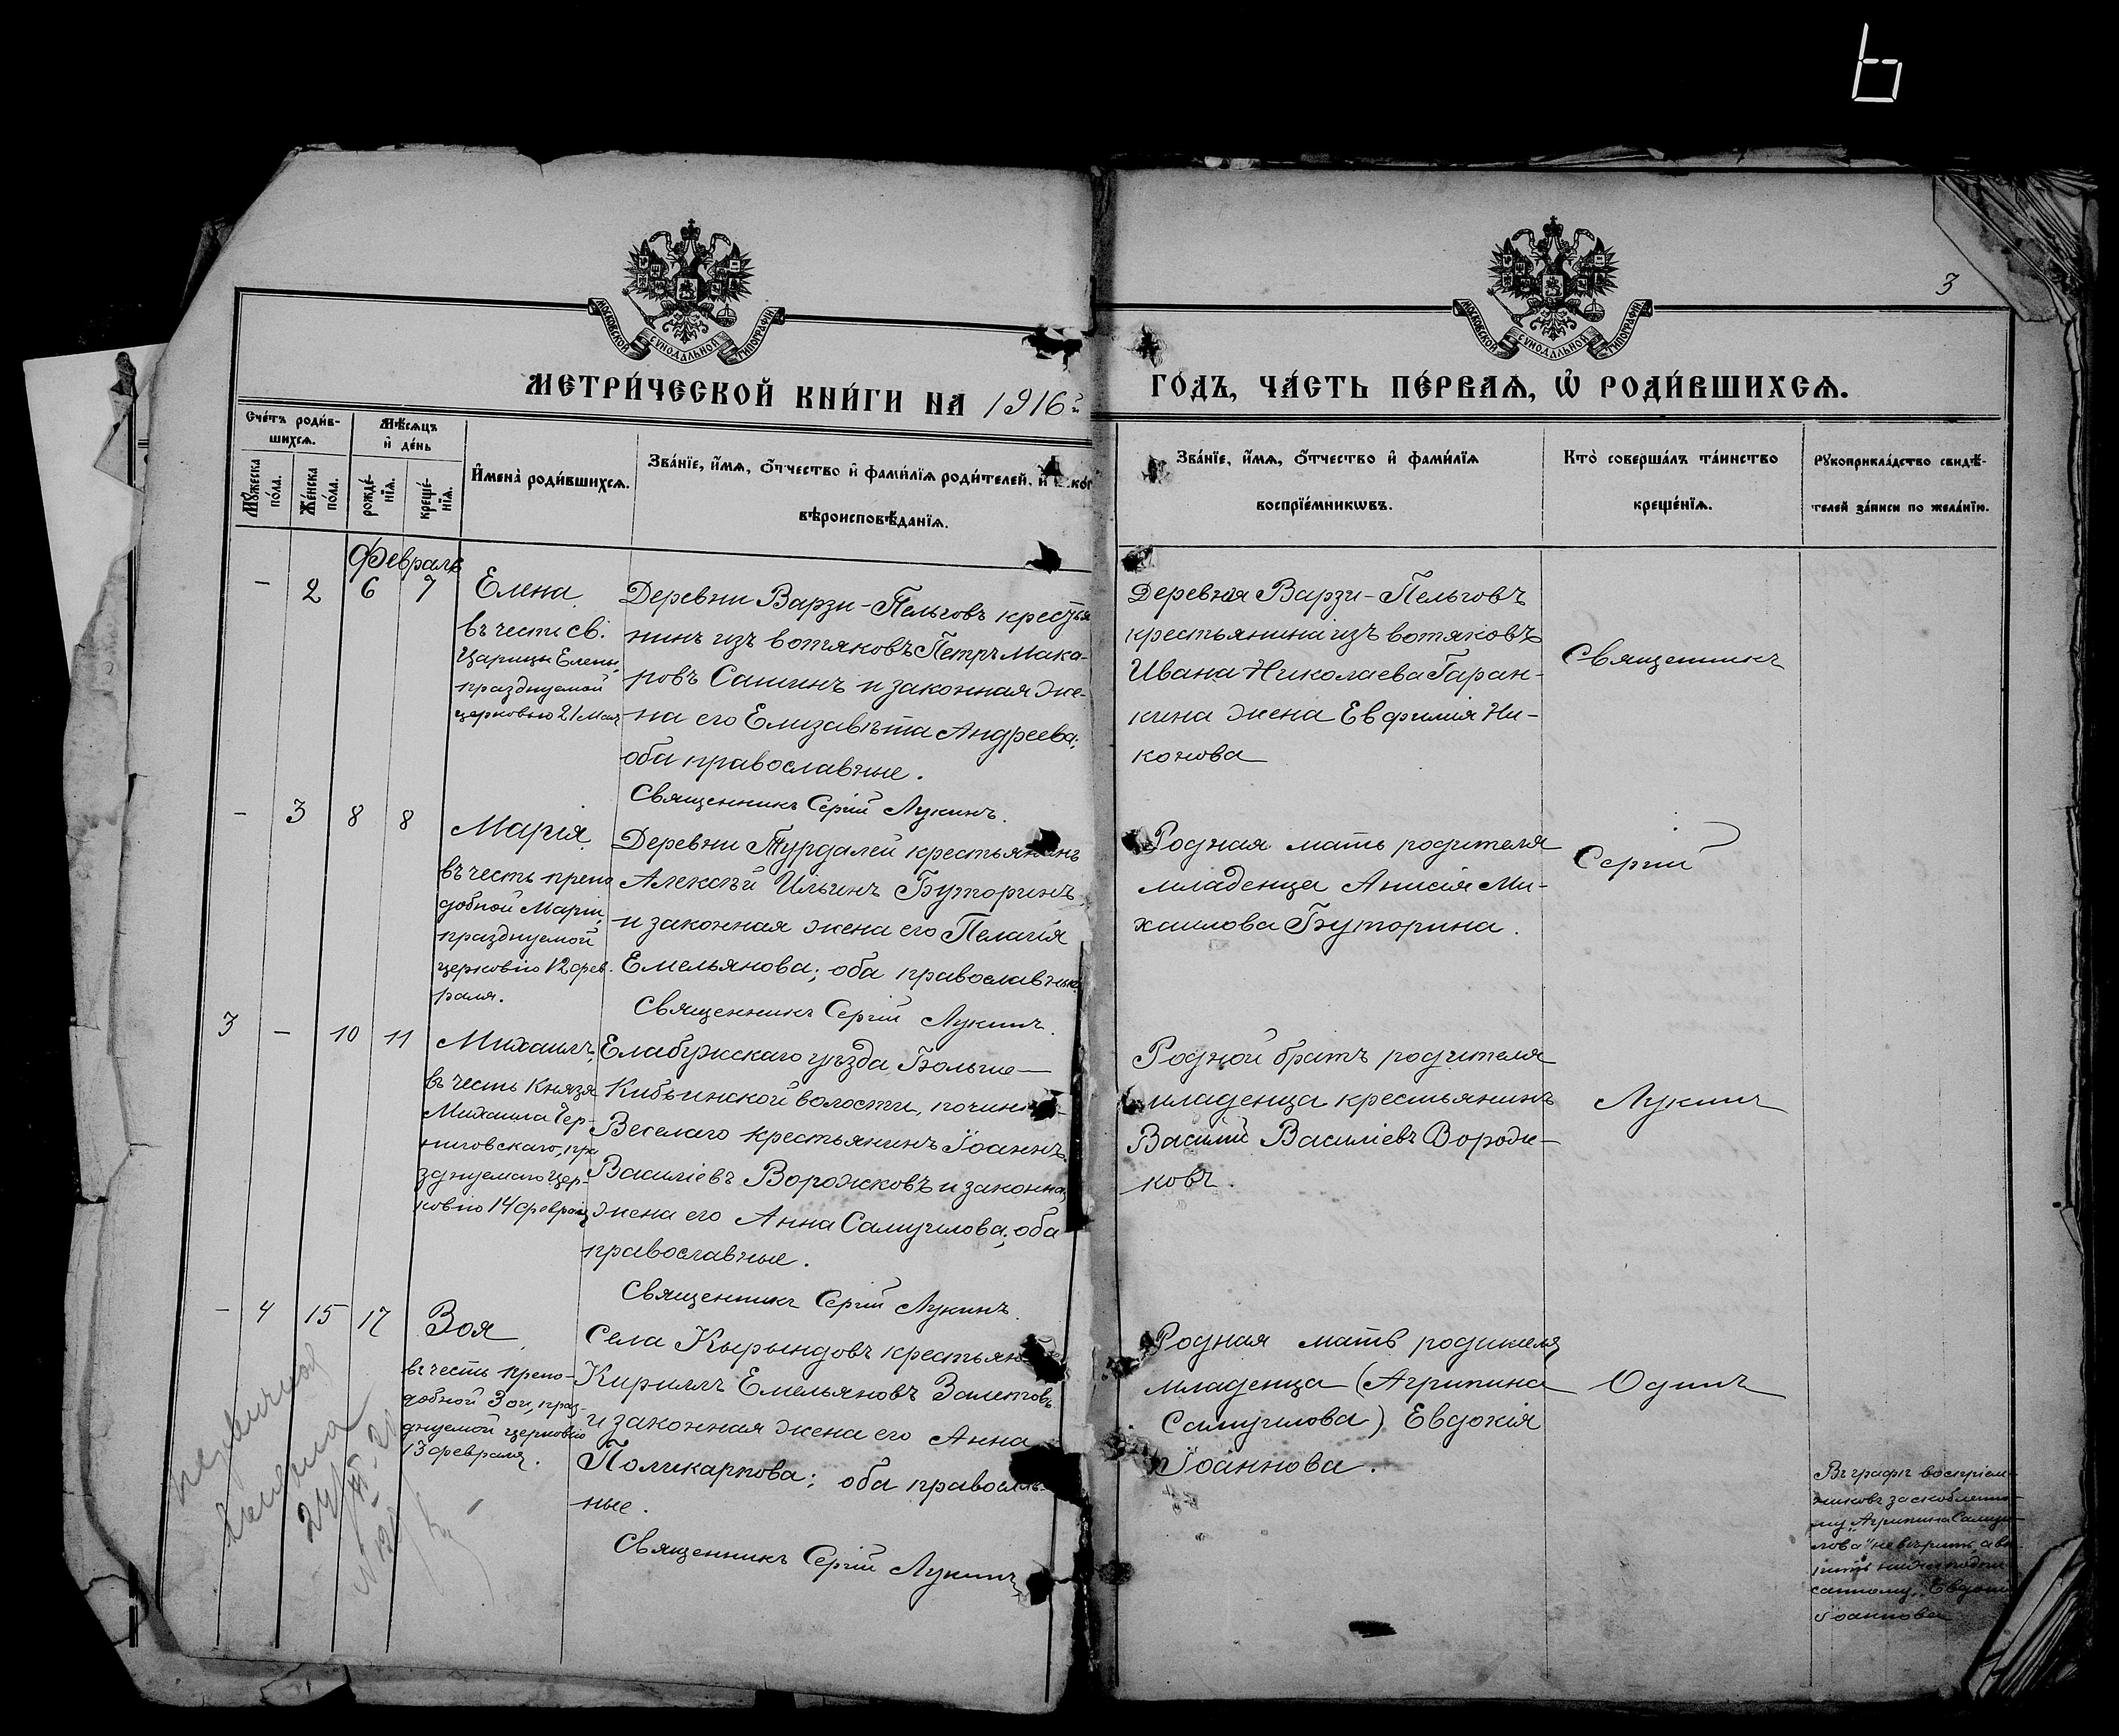 6
3
МОСКОВСКОЙ СѴНОДАЛЬНОЙ ТИПОГРАФІИ
МОСКОВСКОЙ СѴНОДАЛЬНОЙ ТИПОГРАФІИ
МЕТРИ́ЧЕСКОЙ КНИ́ГИ НА 1916й
ГО́ДЪ, ЧА́СТЬ ПЕ́РВАѦ, Ѡ҆ РОДИ́ВШИХСѦ.
Сче́тъ роди́в-
шихсѧ.
Мꙋ́жеска
по́ла.
Же́нска
по́ла.
Мѣ́сѧцъ
и҆ де́нь
рожде́-
нїѧ.
креще́-
нїѧ.
И҆мена̀ роди́вшихсѧ.
Зва́нїе, и҆́мѧ, ѻ҆́тчество и҆ фами́лїѧ роди́телей, и҆
вѣроисповѣ́данїѧ.
Зва́нїе, и҆́мѧ, ѻ҆́тчество и҆ фами́лїѧ
воспрїе́мникѡвъ.
Кто̀ соверша́лъ та́инство
креще́нїѧ.
Рꙋкоприкла́дство свидѣ́-
телей за́писи по жела́нїю.
Февраль
- 2 6 7
Елена
въ честь св.
Царицы Елены,
празднуемой
церковью 21 мая
Деревни Варзи-Пельговъ крестья
нинъ изъ вотяковъ Петръ Мака-
ровъ Санинъ и законная же-
на его Елизавѣта Андреева;
оба православные.
Священникъ Сергій Лукинъ.
Деревня Варзи-Пельговъ
крестьянина изъ вотяковъ
Ивана Николаева Гаран-
кина жена Евфимія Ни-
конова
Священникъ
- 3 8 8
Марія
въ честь препо
добной Маріи,
празднуемой
церковію 12 фев-
раля.
Деревни Турдалей крестьянинъ
Алексѣй Ильинъ Буторинъ
и законная жена его Пелагія
Емельянова; оба православные
Священникъ Сергій Лукинъ.
Родная мать родителя
младенца Анисія Ми-
хаилова Буторина.
Сергій
3 - 10 11
Михаилъ,
въ честь Князя
Михаила Чер-
ниговскаго, пра
зднуемаго цер-
ковію 14 февраля
Елабужскаго уѣзда Больше-
Кибьинской волости, починка
Веселаго крестьянинъ Іоаннъ
Василіевъ Ворожковъ и законная
жена его Анна Самуилова; оба
православные.
Священникъ Сергій Лукинъ.
Родной братъ родителя
младенца крестьянинъ
Василій Василіевъ Ворож-
ковъ.
Лукинъ
- 4 15 17
Зоя
въ честь препо-
добной Зои, праз-
днуемой церковію
13 февраля.
Села Кырындовъ крестьянинъ
Кириллъ Емельяновъ Залетовъ
и законная жена его Анна
Поликарпова; оба православ-
ные.
Священникъ Сергій Лукинъ
Родная мать родителя
младенца (Агрипина
Самуилова) Евдокія
Іоаннова.
Одинъ
Въ графѣ воспріем-
никовъ заскобленно-
му „Агрипина Самуи-
лова" не вѣрить, а вѣ-
рить надписан-
санному „Евдокія
Іоаннова